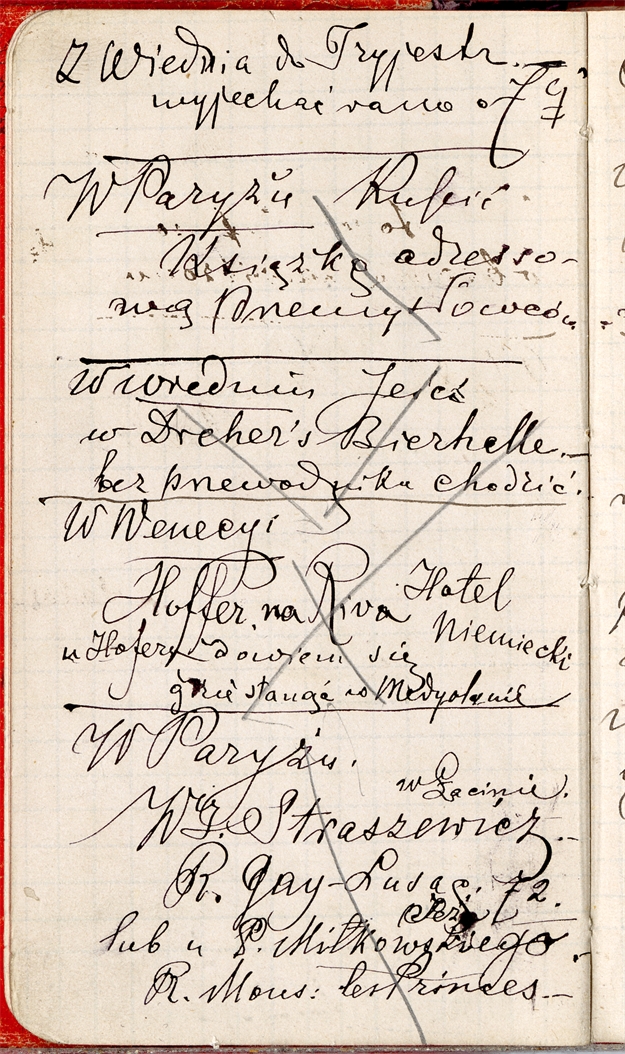 Z Wiednia do Tryjestr.
wyjechać rano o 7
W Paryżu Kupić
Książkę adresso-
wą przemysłowców.
W wiedniu Jeść
w Dreher's Bierhalle.
bez przewodnika chodzić.
W Wenecyi
Hoffer, na Riva Hotel
Niemiecki
u Hofera dowiem się
gdzie stanąć w Medyolanie
W Paryżu.
w Łacinie.
Straszewicz
R. Gay-Lusac. 72.
lub u P. Miłkowskiego
R. Mons: les Princes